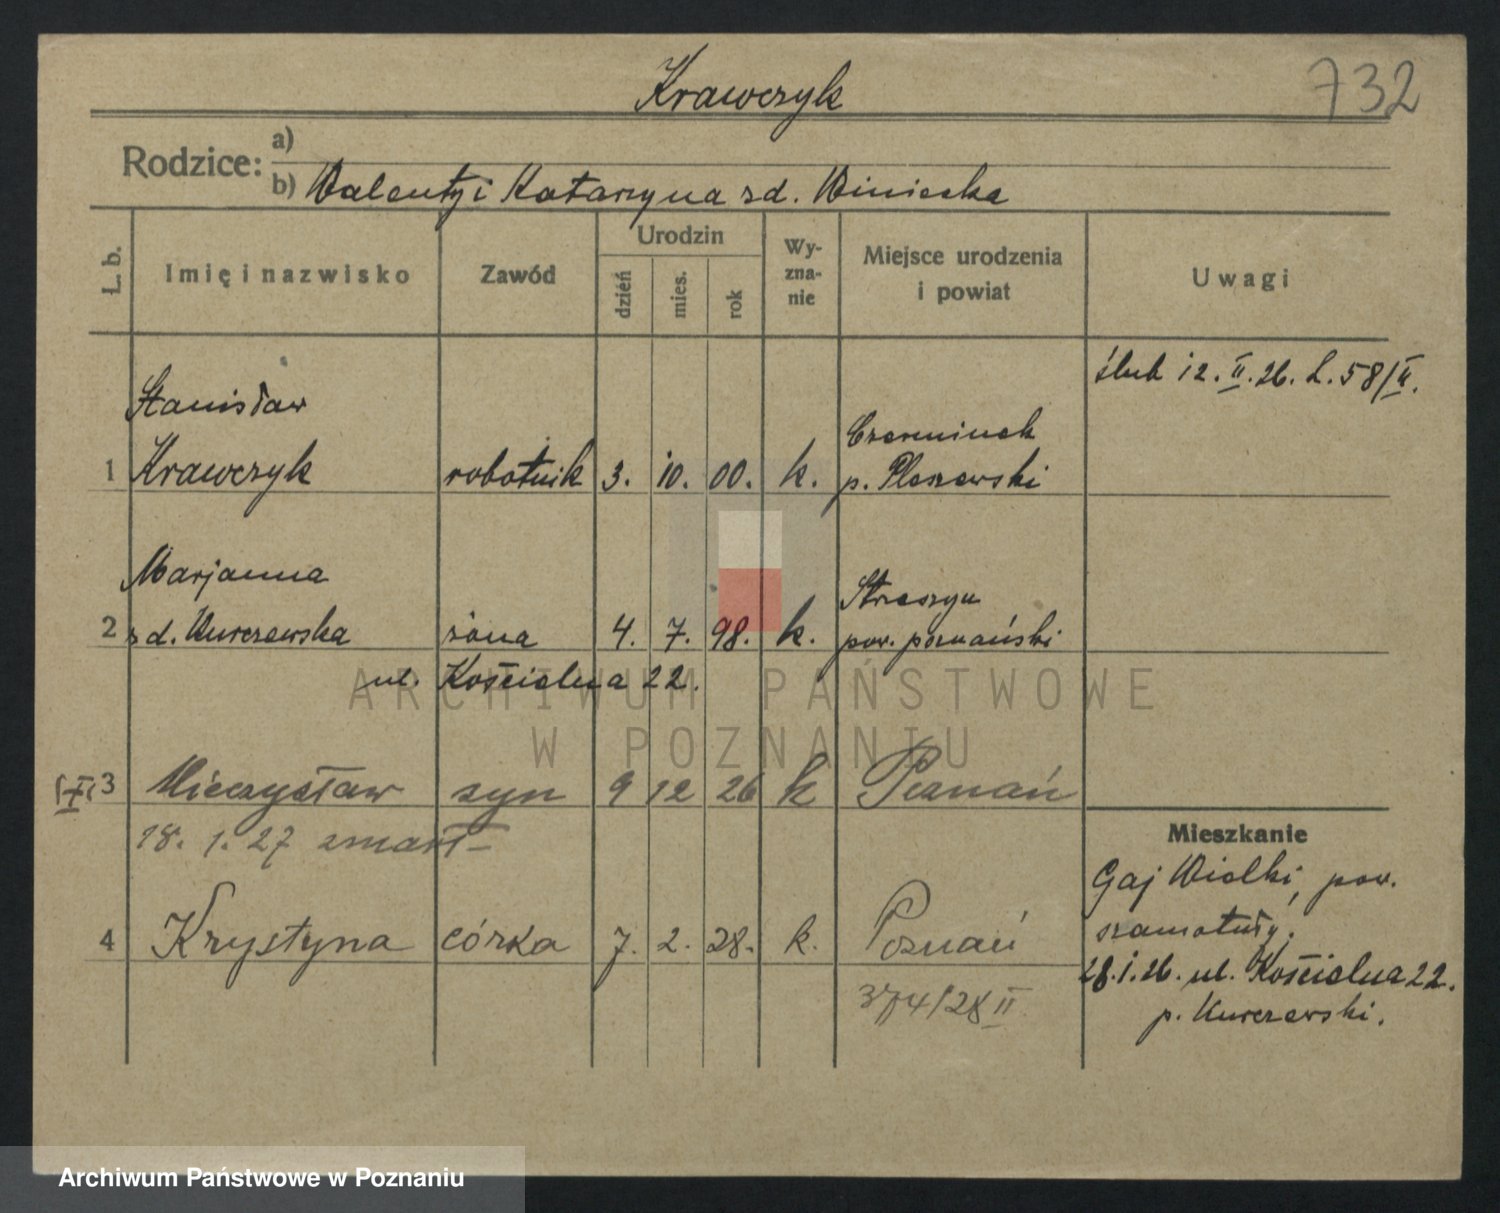 Krawczyk
732
Rodzice:
a)
b) Walenty i Katarzyna zd. Winiecka
L. b.
Imię i nazwisko
Zawód
Urodzin
dzień
mies.
rok
Wy-
zna-
nie
Miejsce urodzenia
i powiat
Uwagi
ślub 12. II. 26. L. 58/II.
Stanisław
1 Krawczyk robotnik 3. 10. 00. k.
Czerminek
p. Pleszewski
Marjanna
2 zd. Kurczewska żona 4. 7. 98. k.
Strzeszyn
pow. poznański
ul. Kościelna 22.
3 Mieczysław syn 9 12 26 k Poznań
18. 1. 27 zmarł
4 Krystyna córka 7. 2. 28. k. Poznań
374/28 II
Mieszkanie
Gaj Wielki, pow.
szamotuły.
28.1.26. ul. Kościelna 22.
p. Kurczewski.
ARCHIWUM PAŃSTWOWE
W POZNANIU
Archiwum Państwowe w Poznaniu